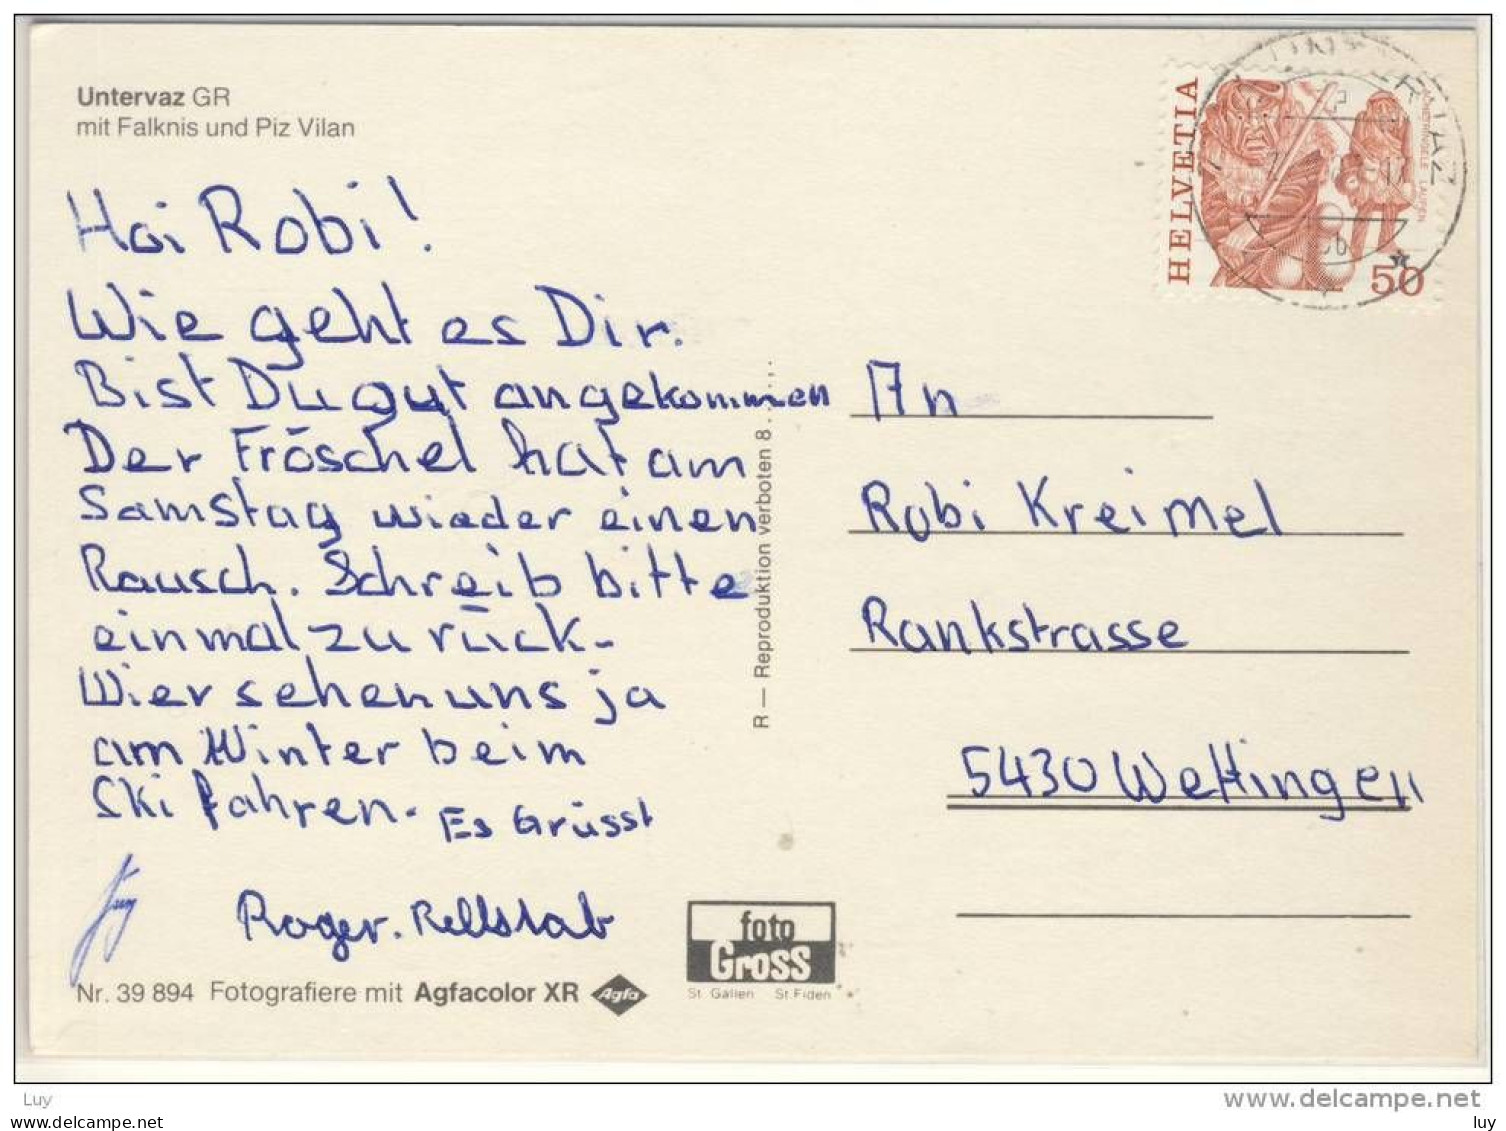 Untervaz GR
mit Falknis und Piz Vilan
Hoi Robi!
Wie geht es Dir.
Bist Du gut angekommen
Der Fröschel hat am
Samstag wieder einen
Rausch. Schreib bitte
einmal zurück-
Wier sehen uns ja
am Winter beim
Ski fahren. Es Grüsst
Roger. Rellstab
Nr. 39 894 Fotografiere mit Agfacolor XR Agfa
R — Reproduktion verboten 8.....
foto
Gross
St. Gallen St. Fiden
HELVETIA
ACHETRINGELE LAUPEN
50
An
Robi Kreimel
Rankstrasse
5430 Wettingen
Luy
www.delcampe.net
www.delcampe.net
luy